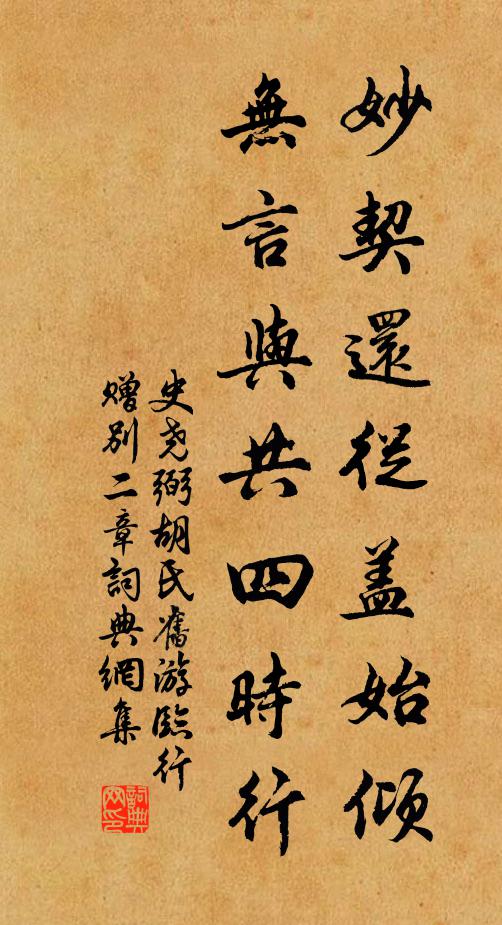 妙契還從蓋始傾
無言與共四時行
史堯弼胡氏舊游臨行
贈別二章詞典網集
詞典
网印